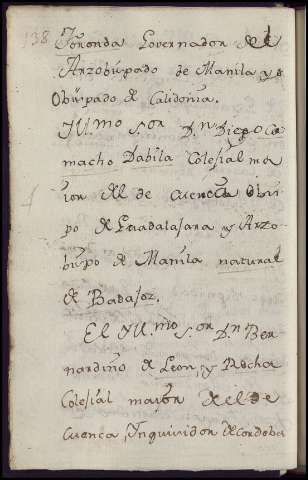 138 Foronda Governador del
Arzobispado de Manila y
Obispado de Calidonia.
Yll.mo S.or D.n Diego Ca
macho Dabila Colejial ma
ior del de cuenca obis
po de Guadalajara y Arzo
bispo de Manila natural
de Badajoz.
El Yll.mo S.or D.n Ber
nardino de Leon, y Rocha
Colejial maior del de
Cuenca, Ynquisidor de Cordoba